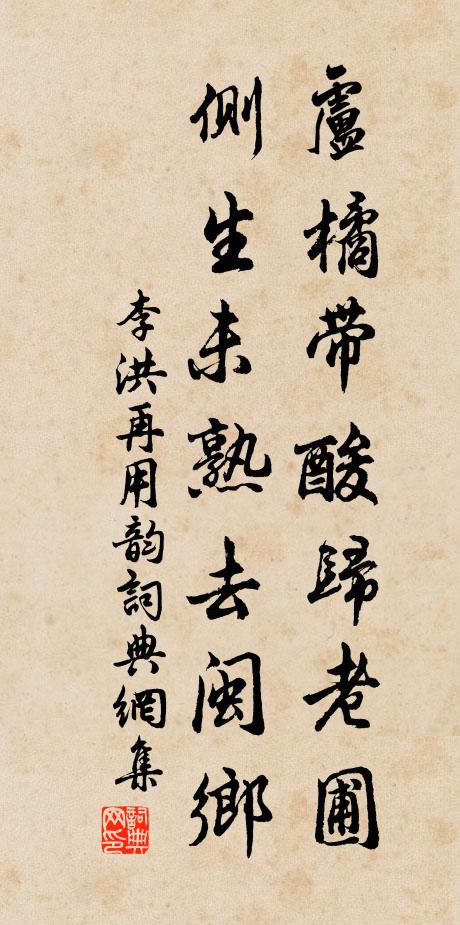 盧橘帶酸歸老圃
側生未熟去閩鄉
李洪再用韵詞典網集
詞典網印